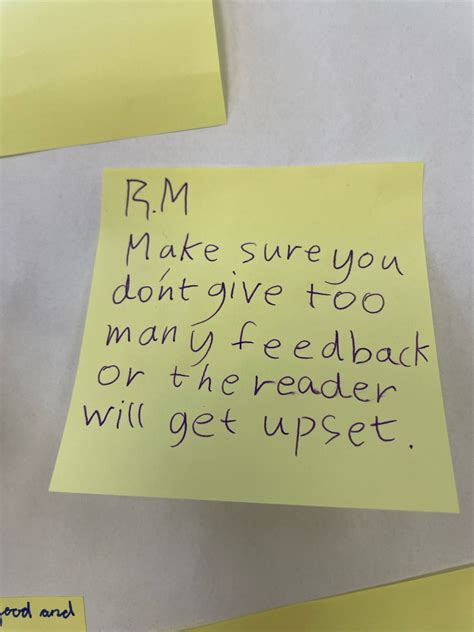 R.M
Make sure you
don't give too
many feedback
or the reader
will get upset.
food and